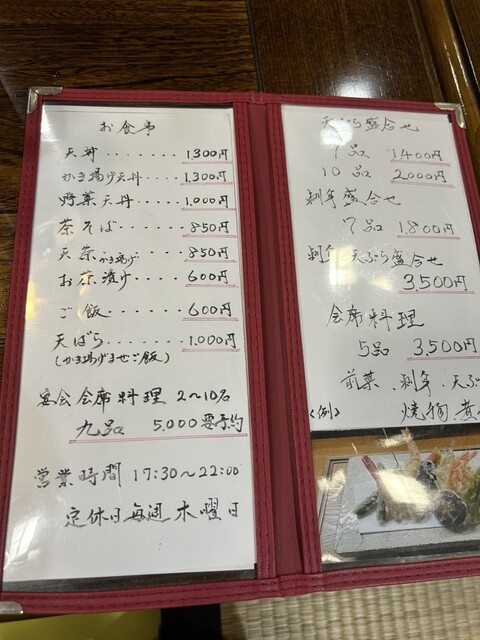 お食事
天丼・・・・・・・1,300円
かき揚げ天丼・・・・・1,300円
野菜天丼・・・・・・1,000円
茶そば・・・・・・850円
天茶かき揚げ・・・・・850円
お茶漬け・・・・・600円
ご飯・・・・・・・600円
天ばら・・・・・・1,000円
(かき揚げまぜご飯)
宴会会席料理 2~10名
九品 5,000要予約
営業時間 17:30~22:00
定休日毎週木曜日
天ぷら盛合せ
7品 1400円
10品 2000円
刺身盛合せ
7品 1,800円
刺身天ぷら盛合せ
3,500円
会席料理
5品 3,500円
前菜、刺身、天ぷ
〈例〉 焼物、煮